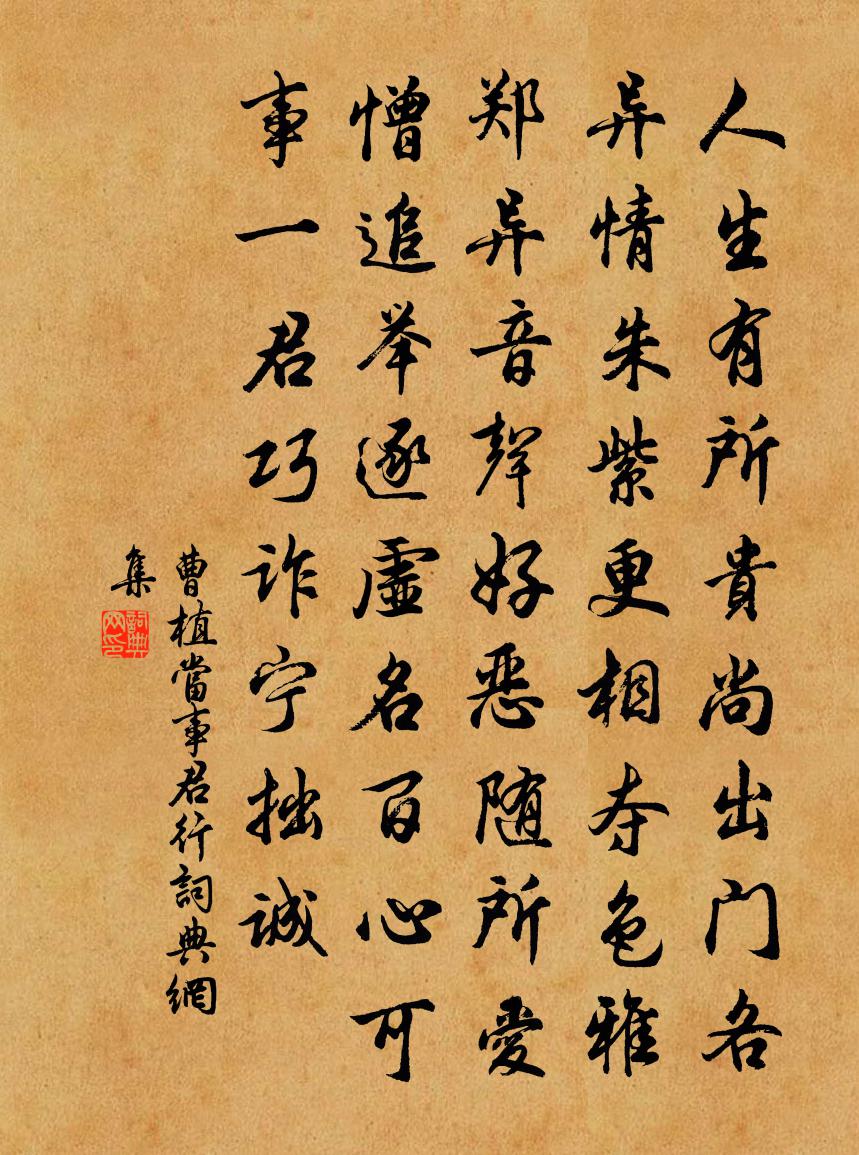 人生有所貴尚出门各
异情朱紫更相夺色雅
郑异音聲好恶随所愛
憎追举逐虚名百心可
事一君巧诈宁拙诚
曹植當事君行詞典網
集
詞典
网印